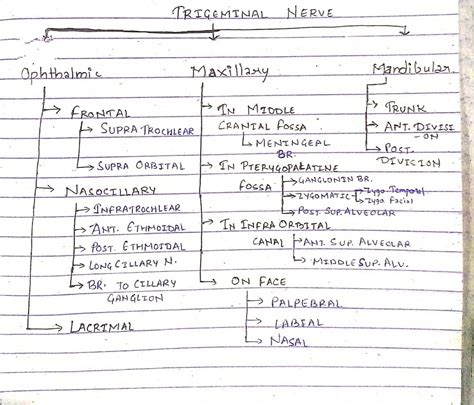 TRIGEMINAL NERVE
Ophthalmic
Maxillary
Mandibular
FRONTAL
SUPRA TROCHLEAR
SUPRA ORBITAL
NASOCILLARY
INFRATROCHLEAR
ANT. ETHMOIDAL
POST. ETHMOIDAL
LONG CILLARY N.
BR. TO CILLARY
GANGLION
LACRIMAL
IN MIDDLE
CRANIAL FOSSA
MENINGEAL
BR.
IN PTERYGOPALATINE
FOSSA
GANGLONIN BR.
ZYGOMATIC
Zygo Temporal
Zygo Facial
POST. SUP. ALVEOLAR
IN INFRA ORBITAL
CANAL
ANT. SUP. ALVEOLAR
MIDDLE SUP. ALV.
ON FACE
PALPEBRAL
LABIAL
NASAL
TRUNK
ANT. DIVISI
-ON
POST.
DIVISION